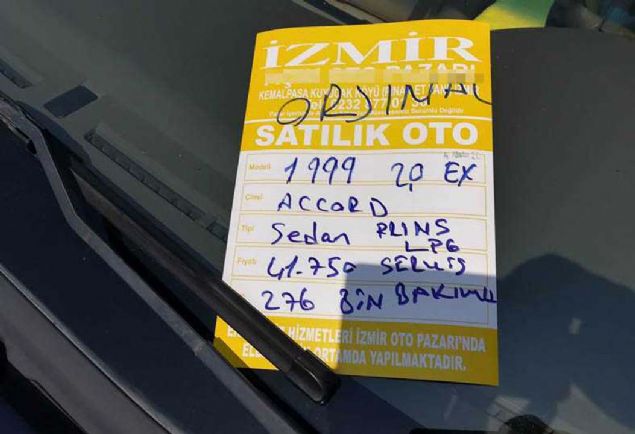 İZMİR
PAZARI
KEMALPAŞA
ORJINAL
SATILIK OTO
Modeli 1999 2,0 EX
Cinsi ACCORD
Tipi Sedan PLINS
LPG
Fiyatı 41.750 SERVİS
276 BİN BAKIMLI
HİZMETLERİ İZMİR OTO PAZARI'NDA
ORTAMDA YAPILMAKTADIR.